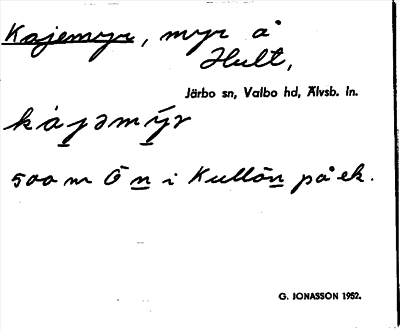 Kajemyr, myr å
Hult,
Järbo sn, Valbo hd, Älvsb. ln.
500 m Ö n i Kullön på ek.
G. JONASSON 1952.